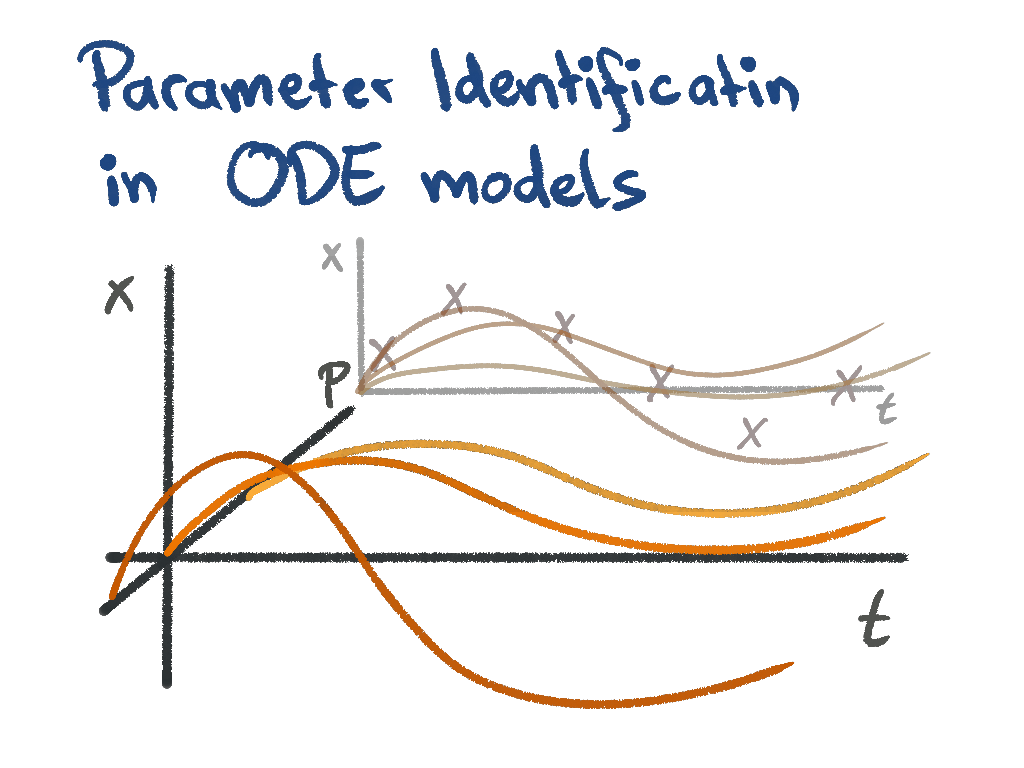 Parameter Identificatin
in ODE models
x
x
P
t
t